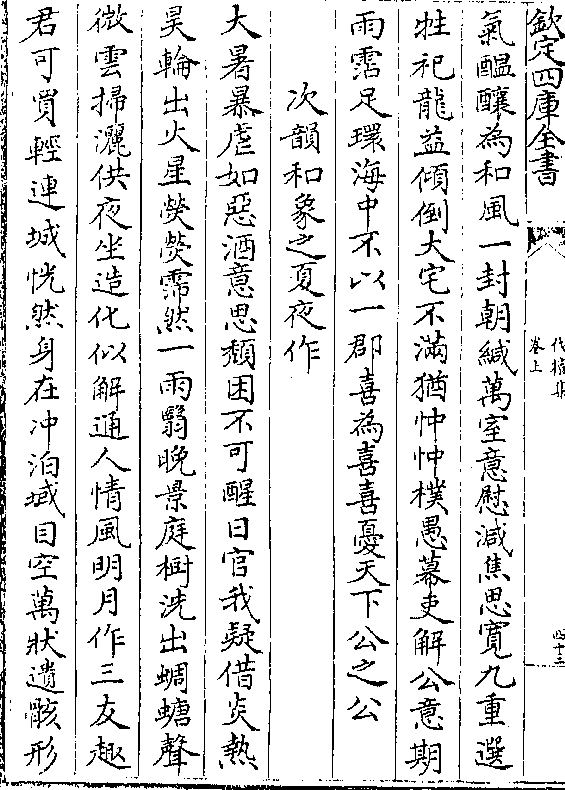 欽定四庫全書
卷上
四十三
氣醖釀為和風一封朝緘萬室意慰減焦思寛九重選
牲祀龍益傾倒大宅不滿猶忡忡樸愚幕吏解公意期
雨霑足環海中不以一郡喜為喜喜憂天下公之公
次韻和象之夏夜作
大暑暴虐如惡酒意思頽困不可醒日官我疑借炎熱
昊輪出火星熒熒霈然一雨翳晚景庭樹洗出蜩螗聲
微雲掃灑供夜坐造化似解通人情風明月作三友趣
君可買輕連城恍然身在冲泊域目空萬狀遺骸形